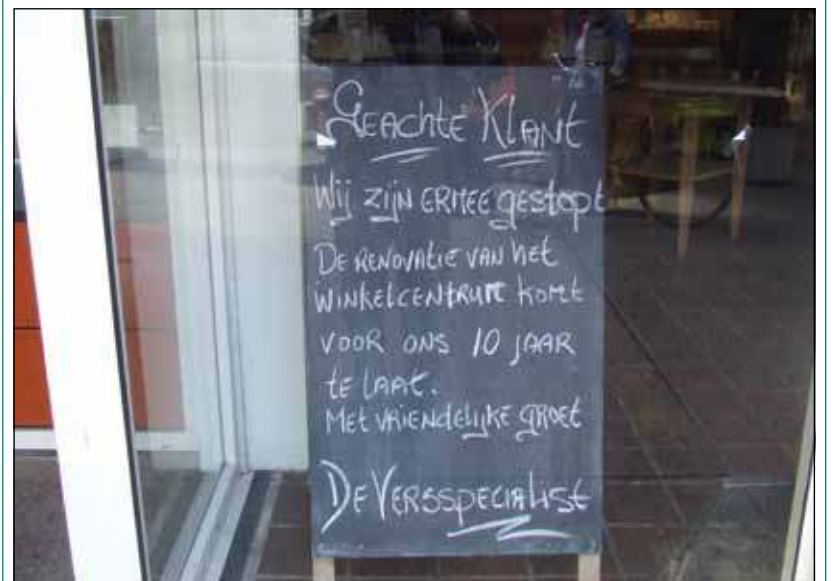 Geachte Klant
Wij zijn ermee gestopt
De renovatie van het
winkelcentrum komt
voor ons 10 jaar
te laat.
Met vriendelijke groet
De Versspecialist